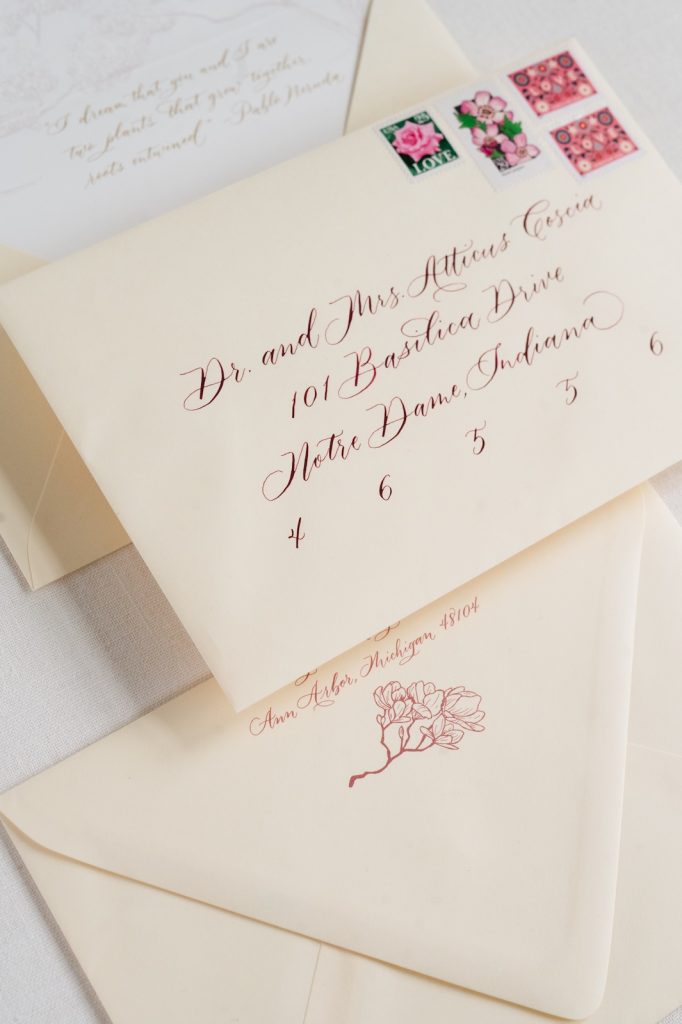 "I dream that you and I are
two plants that grew together,
roots entwined" - Pablo Neruda
USA 29
LOVE
Dr. and Mrs. Atticus Coscia
101 Basilica Drive
Notre Dame, Indiana
4 6 5 5 6
Ann Arbor, Michigan 48104